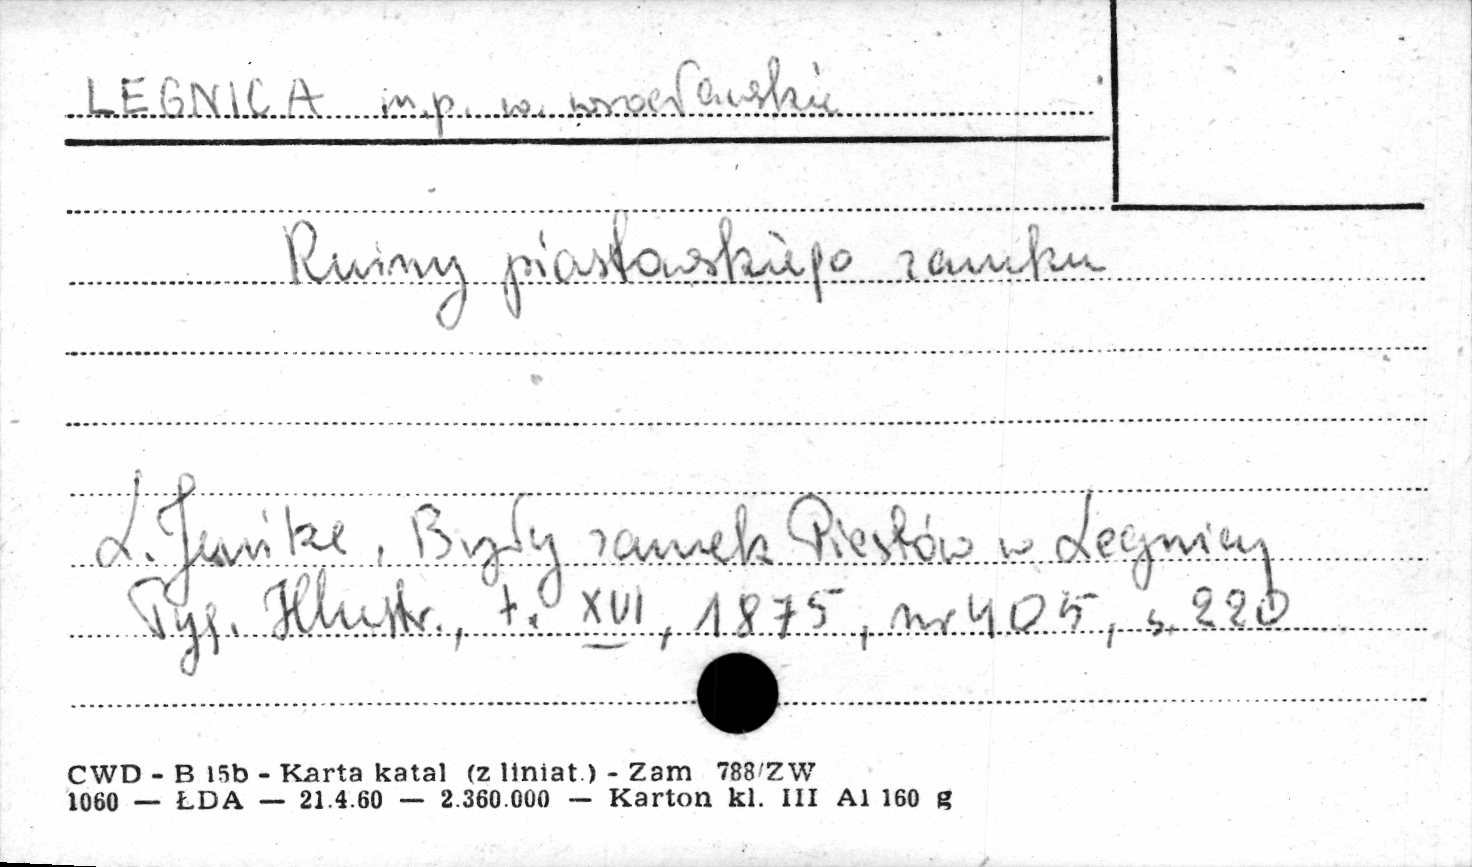 LEGNICA m.p. w. wrocławskie
Ruiny piastowskiego zamku
L. Jenike, Były zamek Piastów w Legnicy
Tyg. Illustr., t. XVI, 1875, nr 405, s. 220
CWD - B 15b - Karta katal (z liniat.) - Zam 788/ZW
1060 — ŁDA — 21.4.60 — 2.360.000 — Karton kl. III A1 160 g